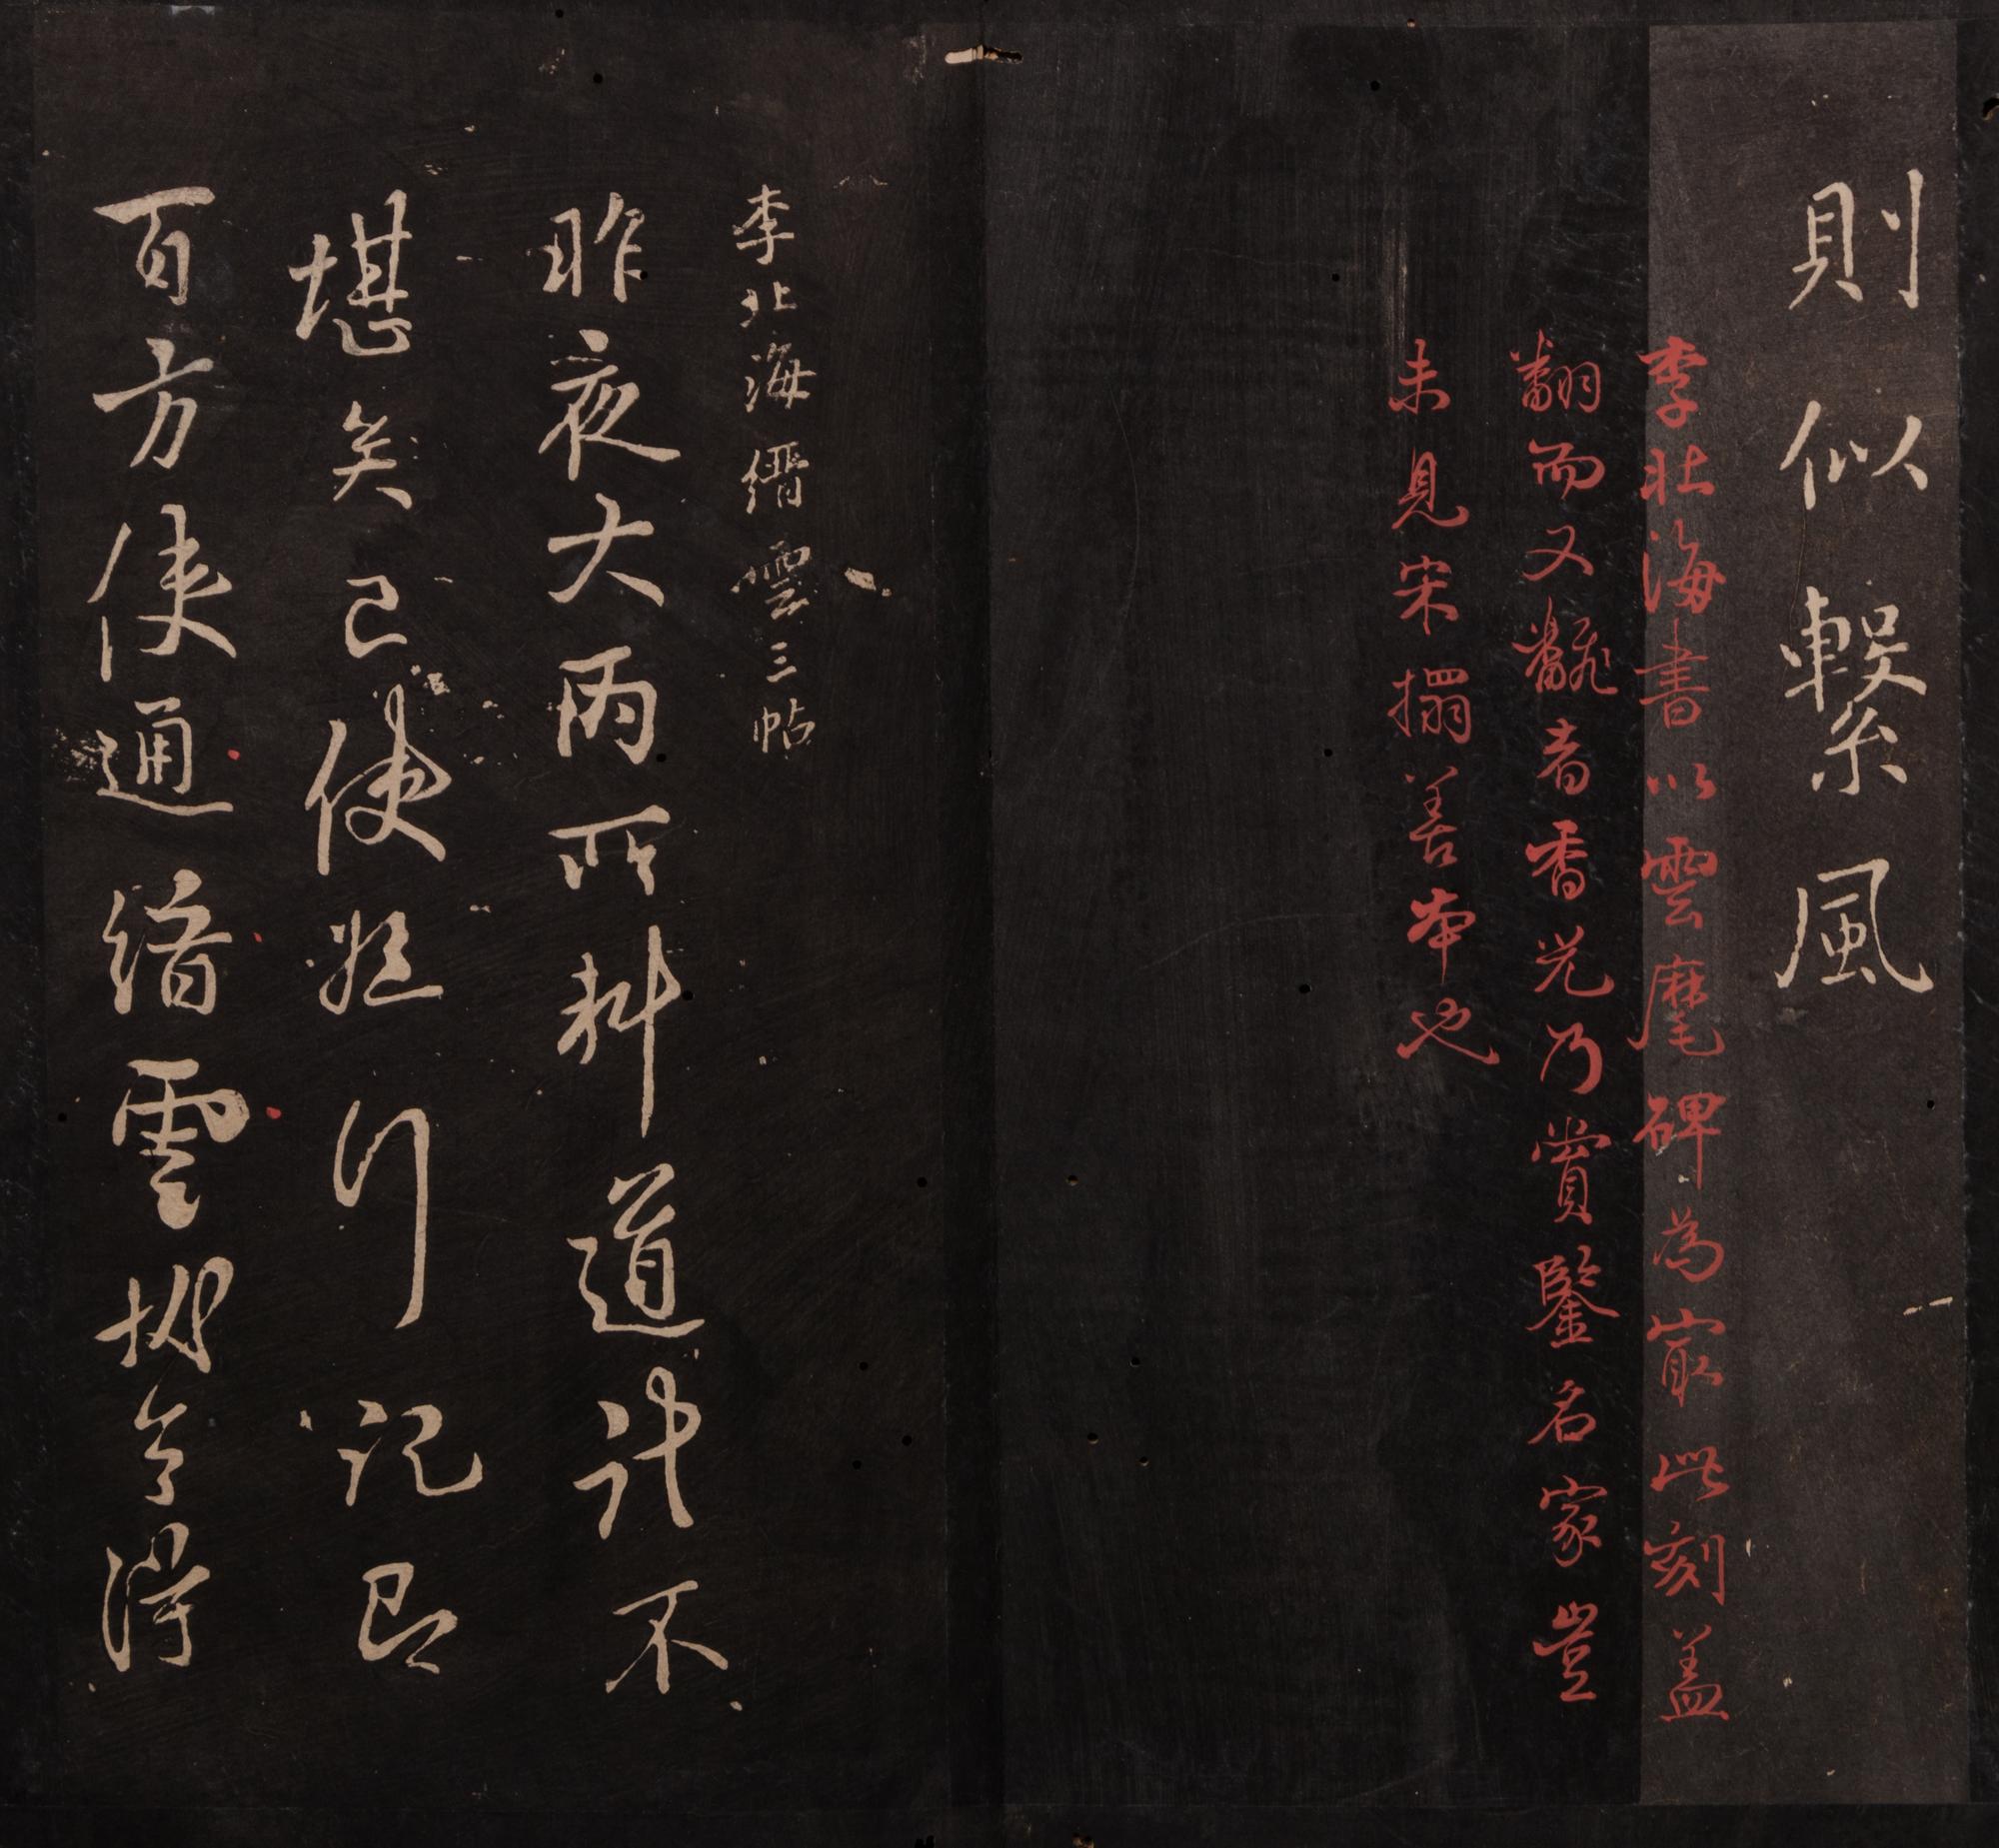 則似繫風
李北海書以雲麾碑為冣此刻盖
翻而又翻者香光乃賞鑒名家豈
未見宋搨善本也
李北海縉雲三帖
昨夜大雨所料道計不
堪矣已使巡行記即
百方使通縉雲物今得